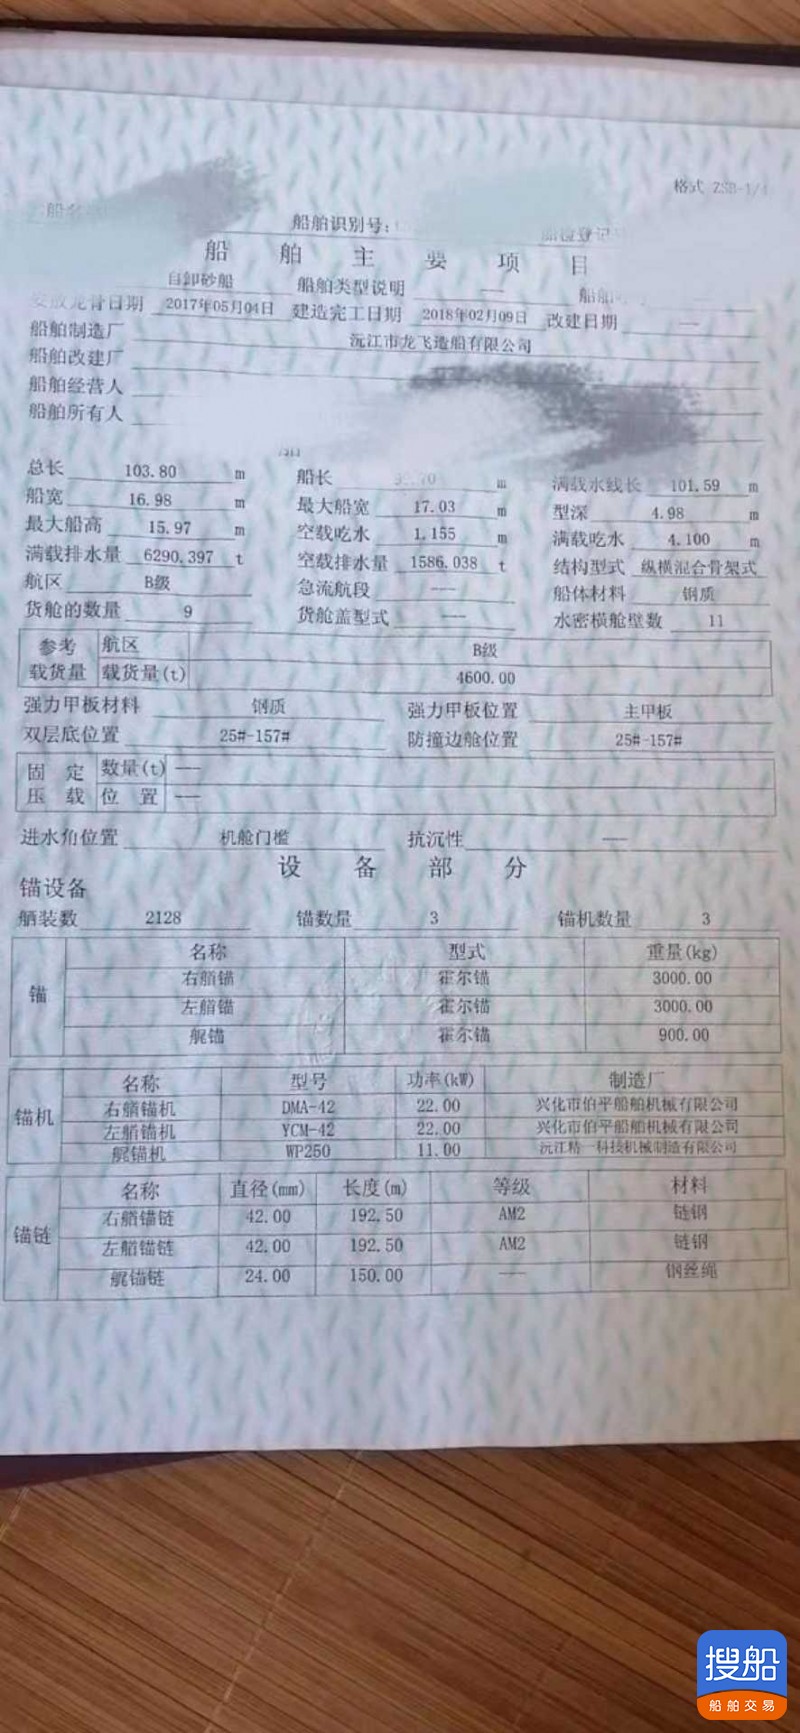 格式 ZSB-1/
船名
船舶识别号:
船检登记
船舶主要项目
自卸砂船 船舶类型说明 —— 船舶
安放龙骨日期 2017年05月04日 建造完工日期 2018年02月09日 改建日期 ——
船舶制造厂 沅江市龙飞造船有限公司
船舶改建厂
船舶经营人
船舶所有人
总长 103.80 m 船长 m 满载水线长 101.59 m
船宽 16.98 m 最大船宽 17.03 m 型深 4.98 m
最大船高 15.97 m 空载吃水 1.155 m 满载吃水 4.100 m
满载排水量 6290.397 t 空载排水量 1586.038 t 结构型式 纵横混合骨架式
航区 B级 急流航段 —— 船体材料 钢质
货舱的数量 9 货舱盖型式 —— 水密横舱壁数 11
参考载货量 航区 B级
载货量(t) 4600.00
强力甲板材料 钢质 强力甲板位置 主甲板
双层底位置 25#-157# 防撞边舱位置 25#-157#
固定压载 数量(t) ——
位置 ——
进水角位置 机舱门槛 抗沉性 ——
设备部分
锚设备
舾装数 2128 锚数量 3 锚机数量 3
锚 名称 型式 重量(kg)
右艏锚 霍尔锚 3000.00
左艏锚 霍尔锚 3000.00
艉锚 霍尔锚 900.00
锚机 名称 型号 功率(kW) 制造厂
右艏锚机 DMA-42 22.00 兴化市伯平船舶机械有限公司
左艏锚机 YCM-42 22.00 兴化市伯平船舶机械有限公司
艉锚机 WP250 11.00 沅江精一科技机械制造有限公司
锚链 名称 直径(mm) 长度(m) 等级 材料
右艏锚链 42.00 192.50 AM2 链钢
左艏锚链 42.00 192.50 AM2 链钢
艉锚链 24.00 150.00 —— 钢丝绳
搜船
船舶交易